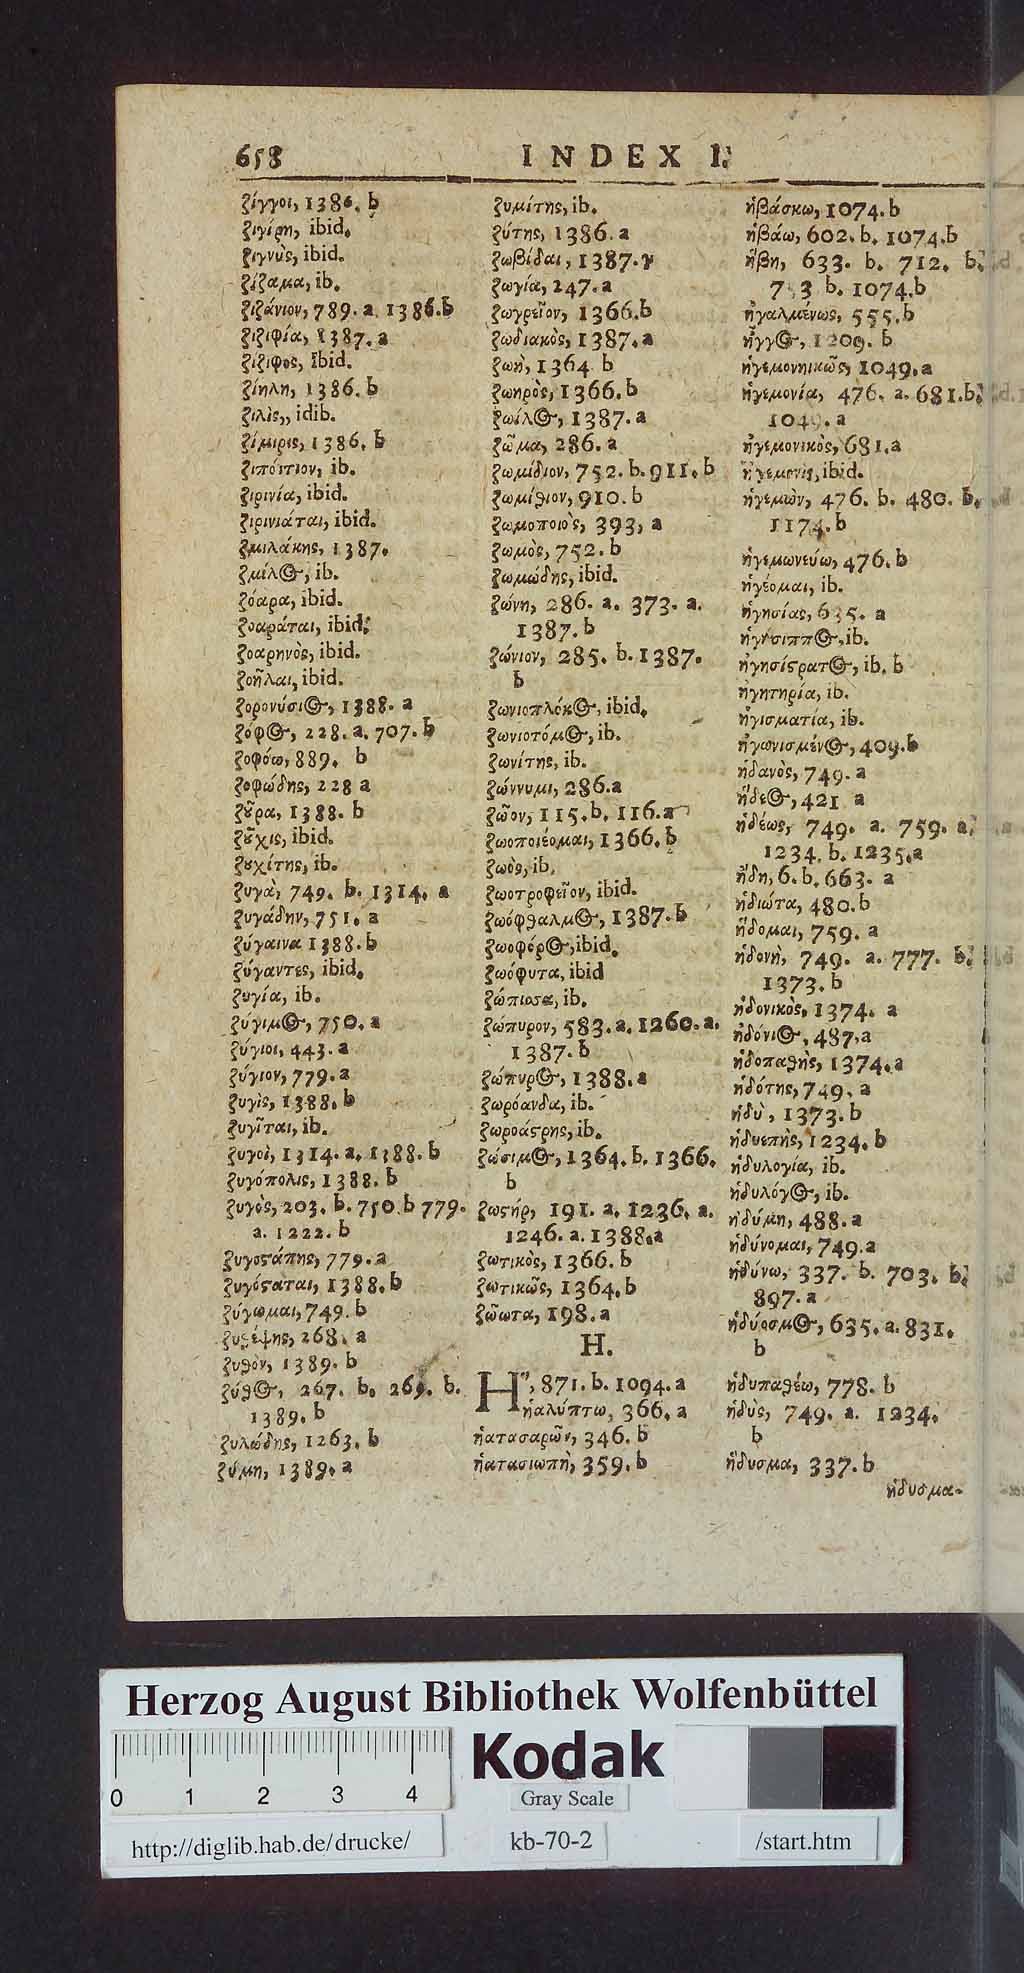 658 INDEX I.
ζίγγοι, 1386. b
ζιγίρη, ibid.
ζιγνὺς, ibid.
ζίζαμα, ib.
ζιζάνιον, 789. a 1386.b
ζιζιφία, 1387. a
ζίζιφος, ibid.
ζίηλη, 1386. b
ζιλὶς,, idib.
ζίμιρις, 1386. b
ζιπόιτιον, ib.
ζιρινία, ibid.
ζιρινιάται, ibid.
ζμιλάκης, 1387.
ζμίλος, ib.
ζόαρα, ibid.
ζοαράται, ibid.
ζοαρηνὸς, ibid.
ζοῆλαι, ibid.
ζορονύσιος, 1388. a
ζόφος, 228. a. 707. b
ζοφόω, 889. b
ζοφώδης, 228 a
ζοῦρα, 1388. b
ζοῦχις, ibid.
ζουχίτης, ib.
ζυγὰ, 749. b. 1314. a
ζυγάδην, 751. a
ζύγαινα 1388. b
ζύγαντες, ibid.
ζυγία, ib.
ζύγιμος, 750. a
ζύγιοι, 443. a
ζύγιον, 779. a
ζυγὶς, 1388. b
ζυγῖται, ib.
ζυγοὶ, 1314. a. 1388. b
ζυγόπολις, 1388. b
ζυγὸς, 203. b. 750 b 779.
a. 1222. b
ζυγοστάτης, 779. a
ζυγόσταται, 1388. b
ζύγωμαι, 749. b
268. a
ζυθὸν, 1389. b
ζύθος, 267. b. 269. b.
1389. b
ζυλώδης, 1263. b
ζύμη, 1389. a
ζυμίτης, ib.
ζύτης, 1386. a
ζωβίδαι, 1387.
ζωγία, 247. a
ζωγρεῖον, 1366.b
ζωδιακὸς, 1387. a
ζωὴ, 1364 b
ζωηρὸς, 1366. b
ζωίλος, 1387. a
ζῶμα, 286. a
ζωμίδιον, 752. b. 911. b
ζωμίθιον, 910. b
ζωμοποιὸς, 393, a
ζωμὸς, 752. b
ζωμώδης, ibid.
ζώνη, 286. a. 373. a.
1387. b
ζώνιον, 285. b. 1387.
b
ζωνιοπλόκος, ibid.
ζωνιοτόμος, ib.
ζωνίτης, ib.
ζώννυμι, 286.a
ζῶον, 115. b. 116. a
ζωοποιέομαι, 1366. b
ζωὸς, ib.
ζωοτροφεῖον, ibid.
ζωόφθαλμος, 1387. b
ζωοφόρος, ibid.
ζωόφυτα, ibid
ζώπισσα, ib.
ζώπυρον, 583. a. 1260. a.
1387. b
ζώπυρος, 1388. a
ζωρόανδα, ib.
ζωροάστρης, ib.
ζώσιμος, 1364. b. 1366.
b
ζωστήρ, 191. a. 1236. a.
1246. a. 1388. a
ζωτικὸς, 1366. b
ζωτικῶς, 1364. b
ζῶωτα, 198. a
H.
Ἤ, 871. b. 1094. a
ἠαλύπτω, 366. a
ἠατασαρῶν, 346. b
ἠατασιωπὴ, 359. b
ἡβάσκω, 1074. b
ἡβάω, 602. b. 1074. b
ἥβη, 633. b. 712. b.
753 b. 1074. b
ἠγαλμένως, 555. b
ἦγγος, 1209. b
ἡγεμονηικῶς, 1049. a
ἡγεμονία, 476. a. 681. b.
1049. a
ἡγεμονικὸς, 681. a
ἡγεμονὶς, ibid.
ἡγεμὼν, 476. b. 480. b.
1174. b
ἡγεμωνεύω, 476. b
ἡγέομαι, ib.
ἡγησίας, 635. a
ἡγήσιππος, ib.
ἡγησίστρατος, ib. b
ἡγητηρία, ib.
ἡγισματία, ib.
ἠγωνισμένος, 409. b
ἡδανὸς, 749. a
ἥδεος, 421 a
ἡδέως, 749. a. 759. a.
1234. b. 1235. a
ἤδη, 6. b. 663. a
ἡδιώτα, 480. b
ἥδομαι, 759. a
ἡδονὴ, 749. a. 777. b.
1373. b
ἡδονικὸς, 1374. a
ἡδόνιος, 487. a
ἡδοπαθὴς, 1374. a
ἡδότης, 749. a
ἡδὺ, 1373. b
ἡδυεπὴς, 1234. b
ἡδυλογία, ib.
ἡδυλόγος, ib.
ἡδύμη, 488. a
ἡδύνομαι, 749. a
ἡδύνω, 337. b. 703. b.
897. a
ἡδύοσμος, 635. a. 831.
b
ἡδυπαθέω, 778. b
ἡδὺς, 749. a. 1234.
b
ἥδυσμα, 337. b
ἡδυσμα-
Herzog August Bibliothek Wolfenbüttel
0 1 2 3 4
Kodak
Gray Scale
http://diglib.hab.de/drucke/ kb-70-2 /start.htm